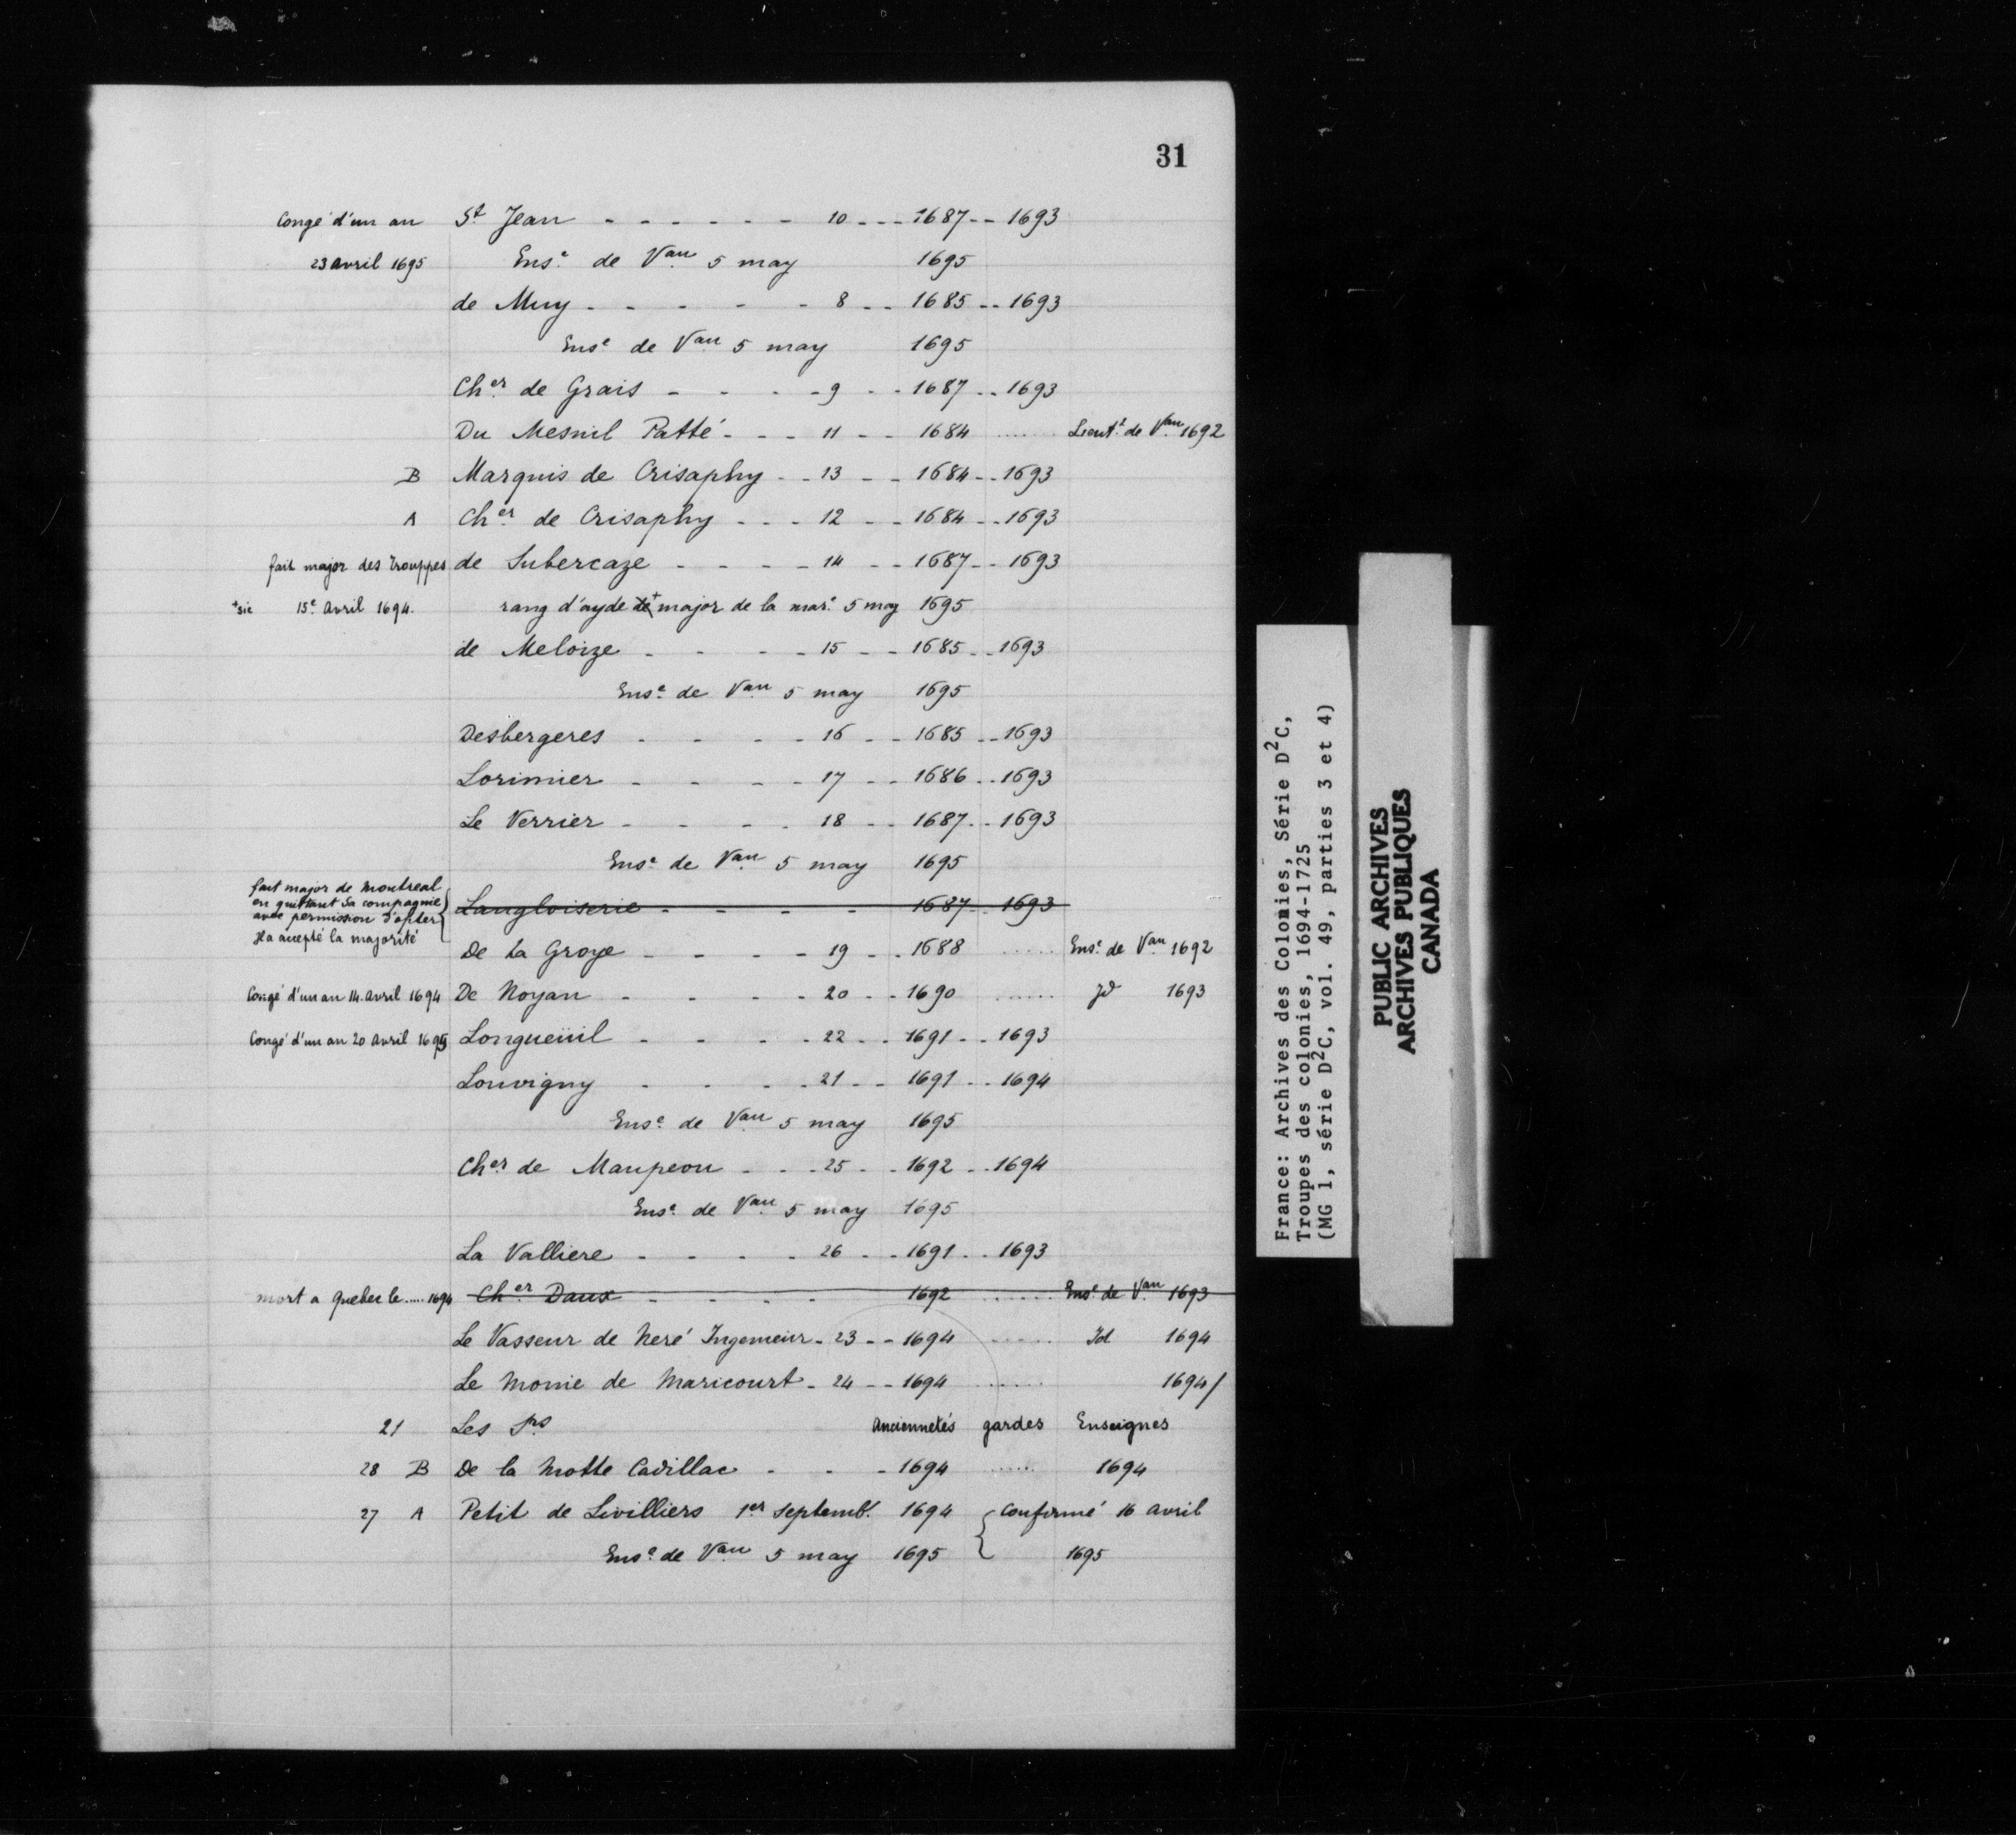 31
Congé d'un an St Jean - - - - - - 10 - - - 1687 - - 1693
23 avril 1695 Ense de Vau 5 may 1695
de Muy - - - - - 8 - - 1685 - - 1693
Ense de Vau 5 may 1695
Cher de Grais - - - - 9 - - 1687 - - 1693
Du Mesnil Patté - - - 11 - - 1684 ...... Lieut.t de Vau 1692
B Marquis de Crisaphy - - 13 - - 1684 - - 1693
A Cher de Crisaphy - - - 12 - - 1684 - - 1693
fait major des trouppes de Subercaze - - - - 14 - - 1687 - - 1693
+sic 15e avril 1694. rang d'ayde de+ major de la mare 5 may 1695
de Meloize - - - - 15 - - 1685 - - 1693
Ense de Vau 5 may 1695
Desbergeres - - - - 16 - - 1685 - - 1693
Lorimier - - - - 17 - - 1686 - - 1693
Le Verrier - - - - 18 - - 1687 - - 1693
Ense de Vau 5 may 1695
fait major de Montreal
en quittant sa compagnie
avec permission d'opter
Il a accepté la majorité
Langloiserie - - - - - 1687 - - 1693
De La Groye - - - - 19 - - 1688 ...... Ense de Vau 1692
Congé d'un an 14 avril 1694 De Noyan - - - - 20 - - 1690 ...... Id 1693
Congé d'un an 20 avril 1695 Longueüil - - - - 22 - - 1691 - - 1693
Louvigny - - - - 21 - - 1691 - - 1694
Ense de Vau 5 may 1695
Cher de Maupeou - - - 25 - - 1692 - - 1694
Ense de Vau 5 may 1695
La Valliere - - - - 26 - - 1691 - - 1693
mort a Quebec le ..... 1694 Cher Daux - - - - 1692 ...... Ense de Vau 1693
Le Vasseur de Neré Ingenieur - 23 - - 1694 ...... Id 1694
Le Moine de Maricourt - 24 - - 1694 ...... 1694/
21 Les Srs Anciennetés gardes Enseignes
28 B De la Motte Cadillac - - - 1694 ...... 1694
27 A Petit de Livilliers 1er septemb. 1694 { Confirmé 16 avril
Ense de Vau 5 may 1695 1695
France: Archives des Colonies, Série D2C,
Troupes des colonies, 1694-1725
(MG 1, série D2C, vol. 49, parties 3 et 4)
PUBLIC ARCHIVES
ARCHIVES PUBLIQUES
CANADA